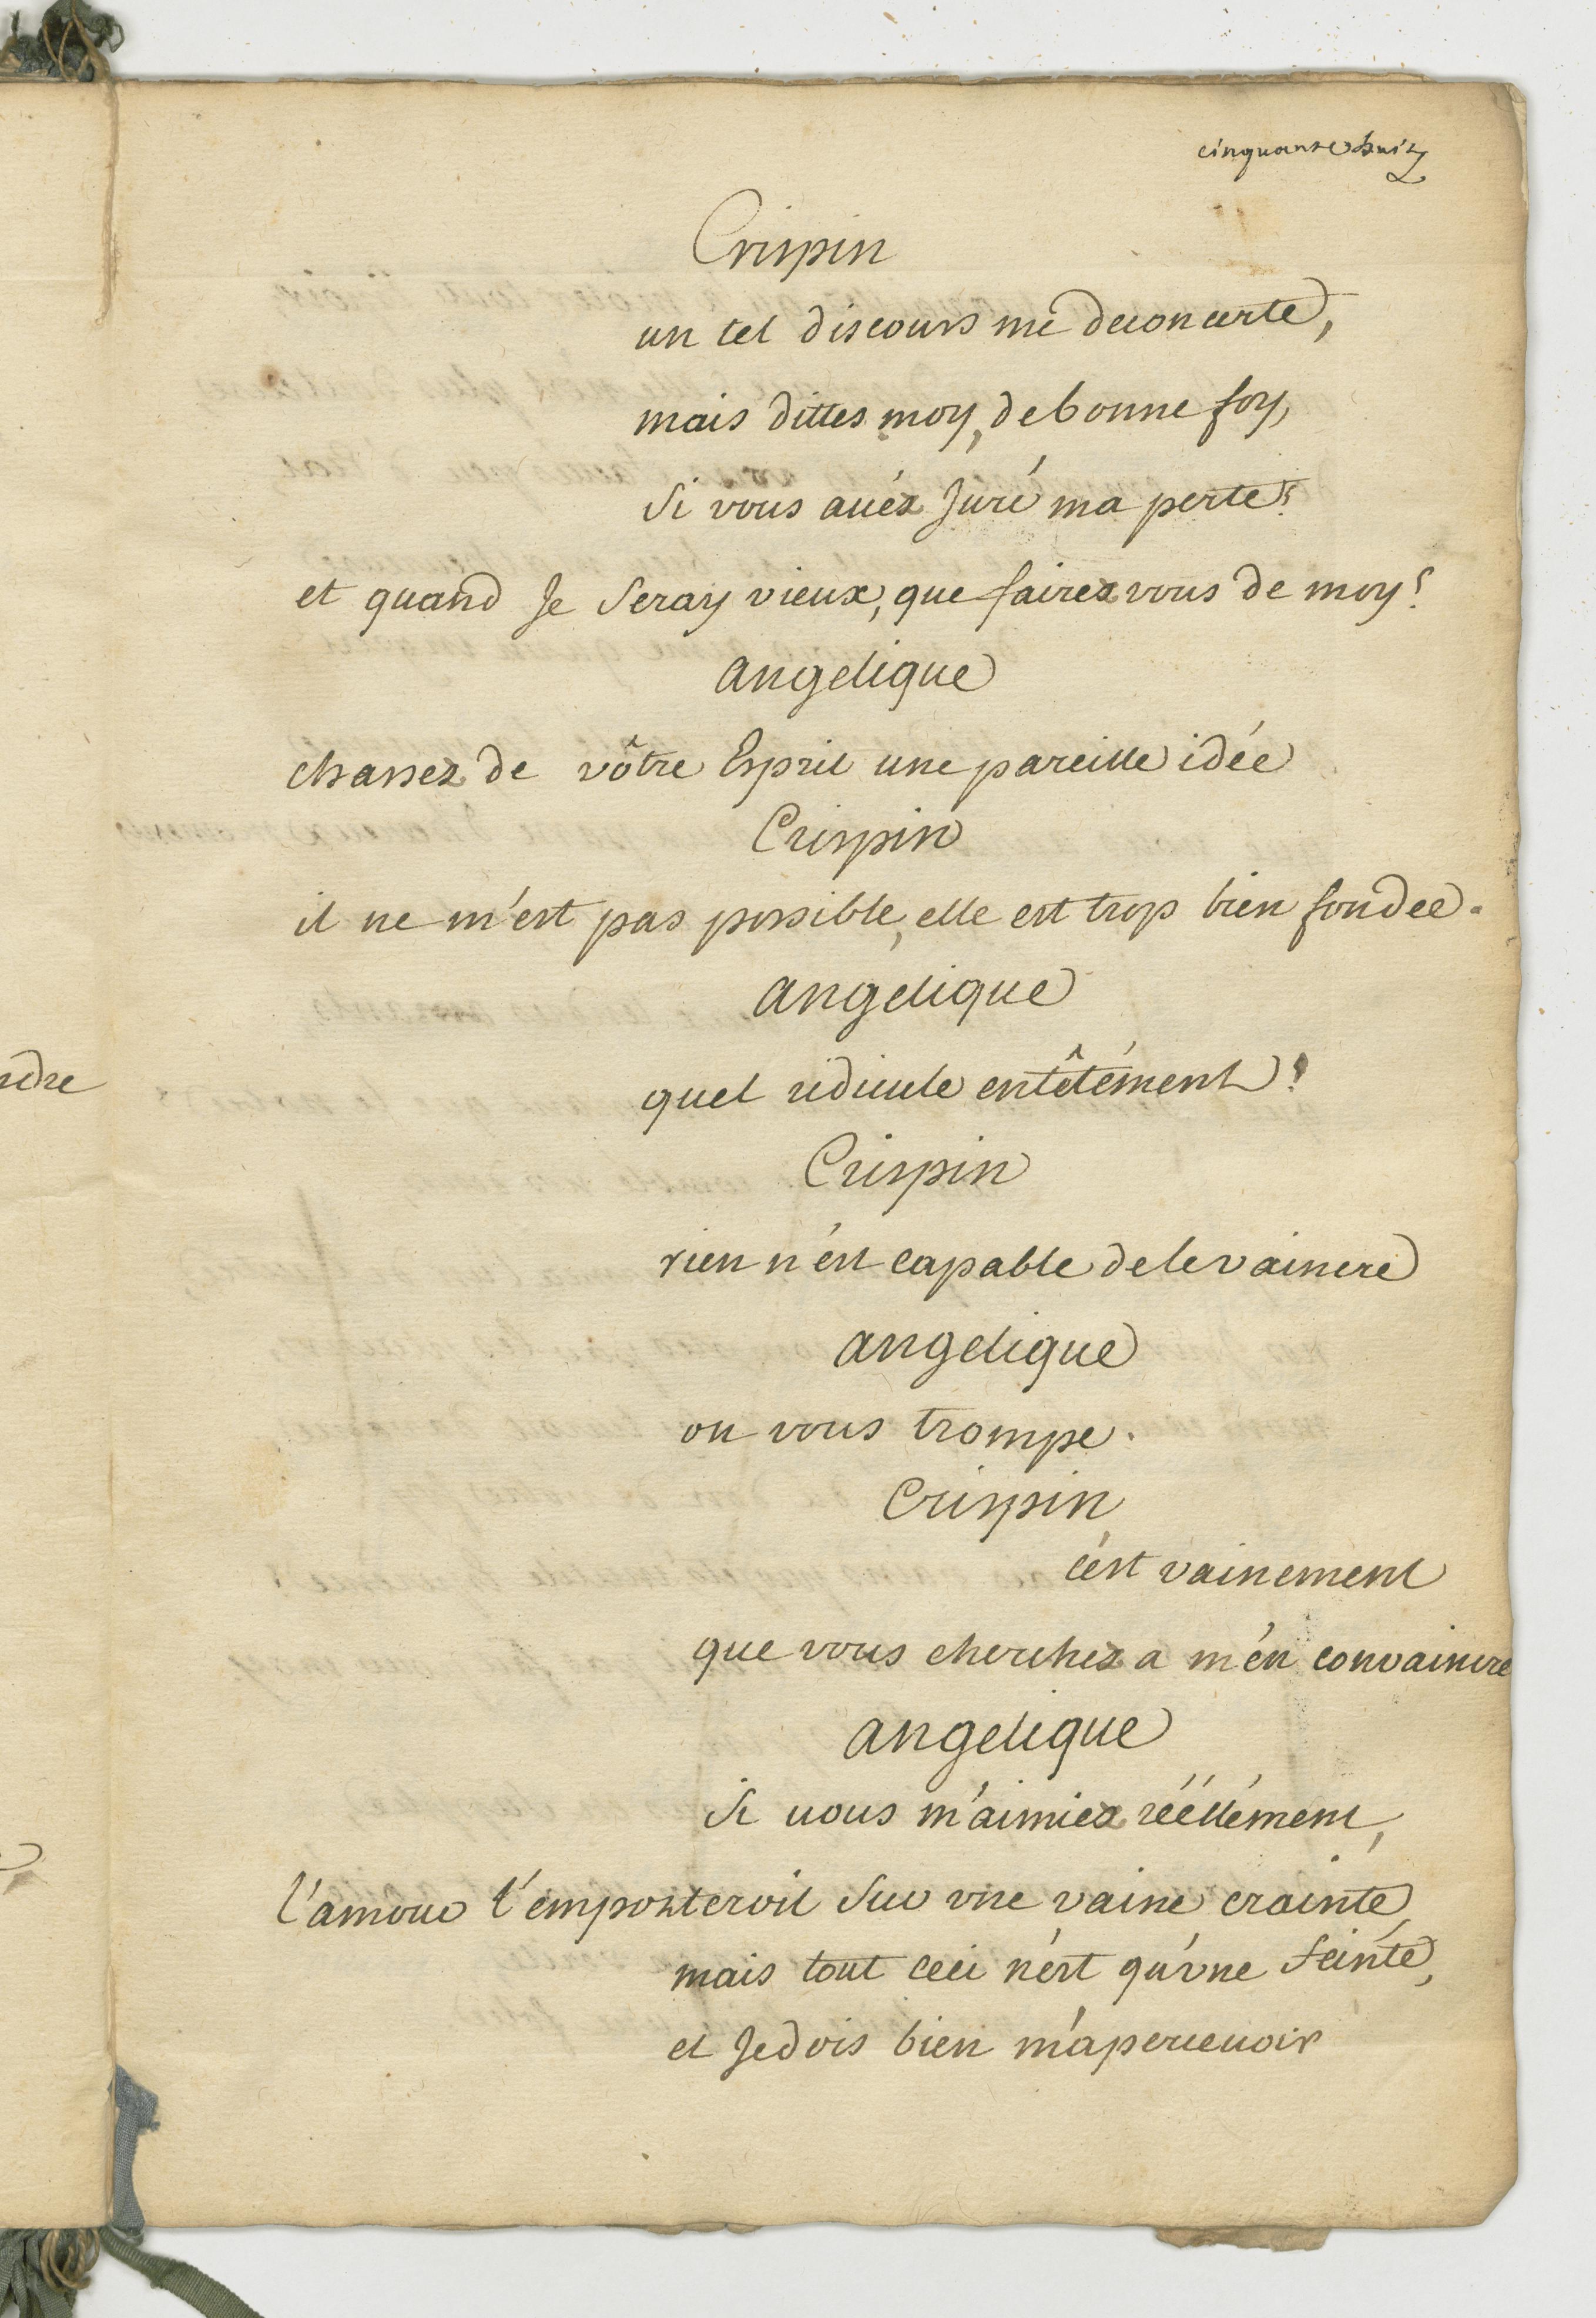 cinquante huit
Crispin
un tel discours me deconcerte,
mais dittes moy, de bonne foy,
Si vous aués Juré ma perte?
et quand Je Seray vieux, que fairez vous de moy?
angelique
chassez de vôtre Esprit une pareille idée
Crispin
il ne m'est pas possible, elle est trop bien fondee.
angelique
quel ridicule entêtément!
Crispin
rien n'est capable de le vaincre
angelique
on vous trompe.
Crispin
c'est vainement
que vous cherchez a m'en convaincre
angelique
Si uous m'aimiez réëllément,
l'amour l'emporteroit Sur vne vaine crainte,
mais tout ceci n'est qu'vne feinte,
et Je dois bien m'aperceuoir
ndre